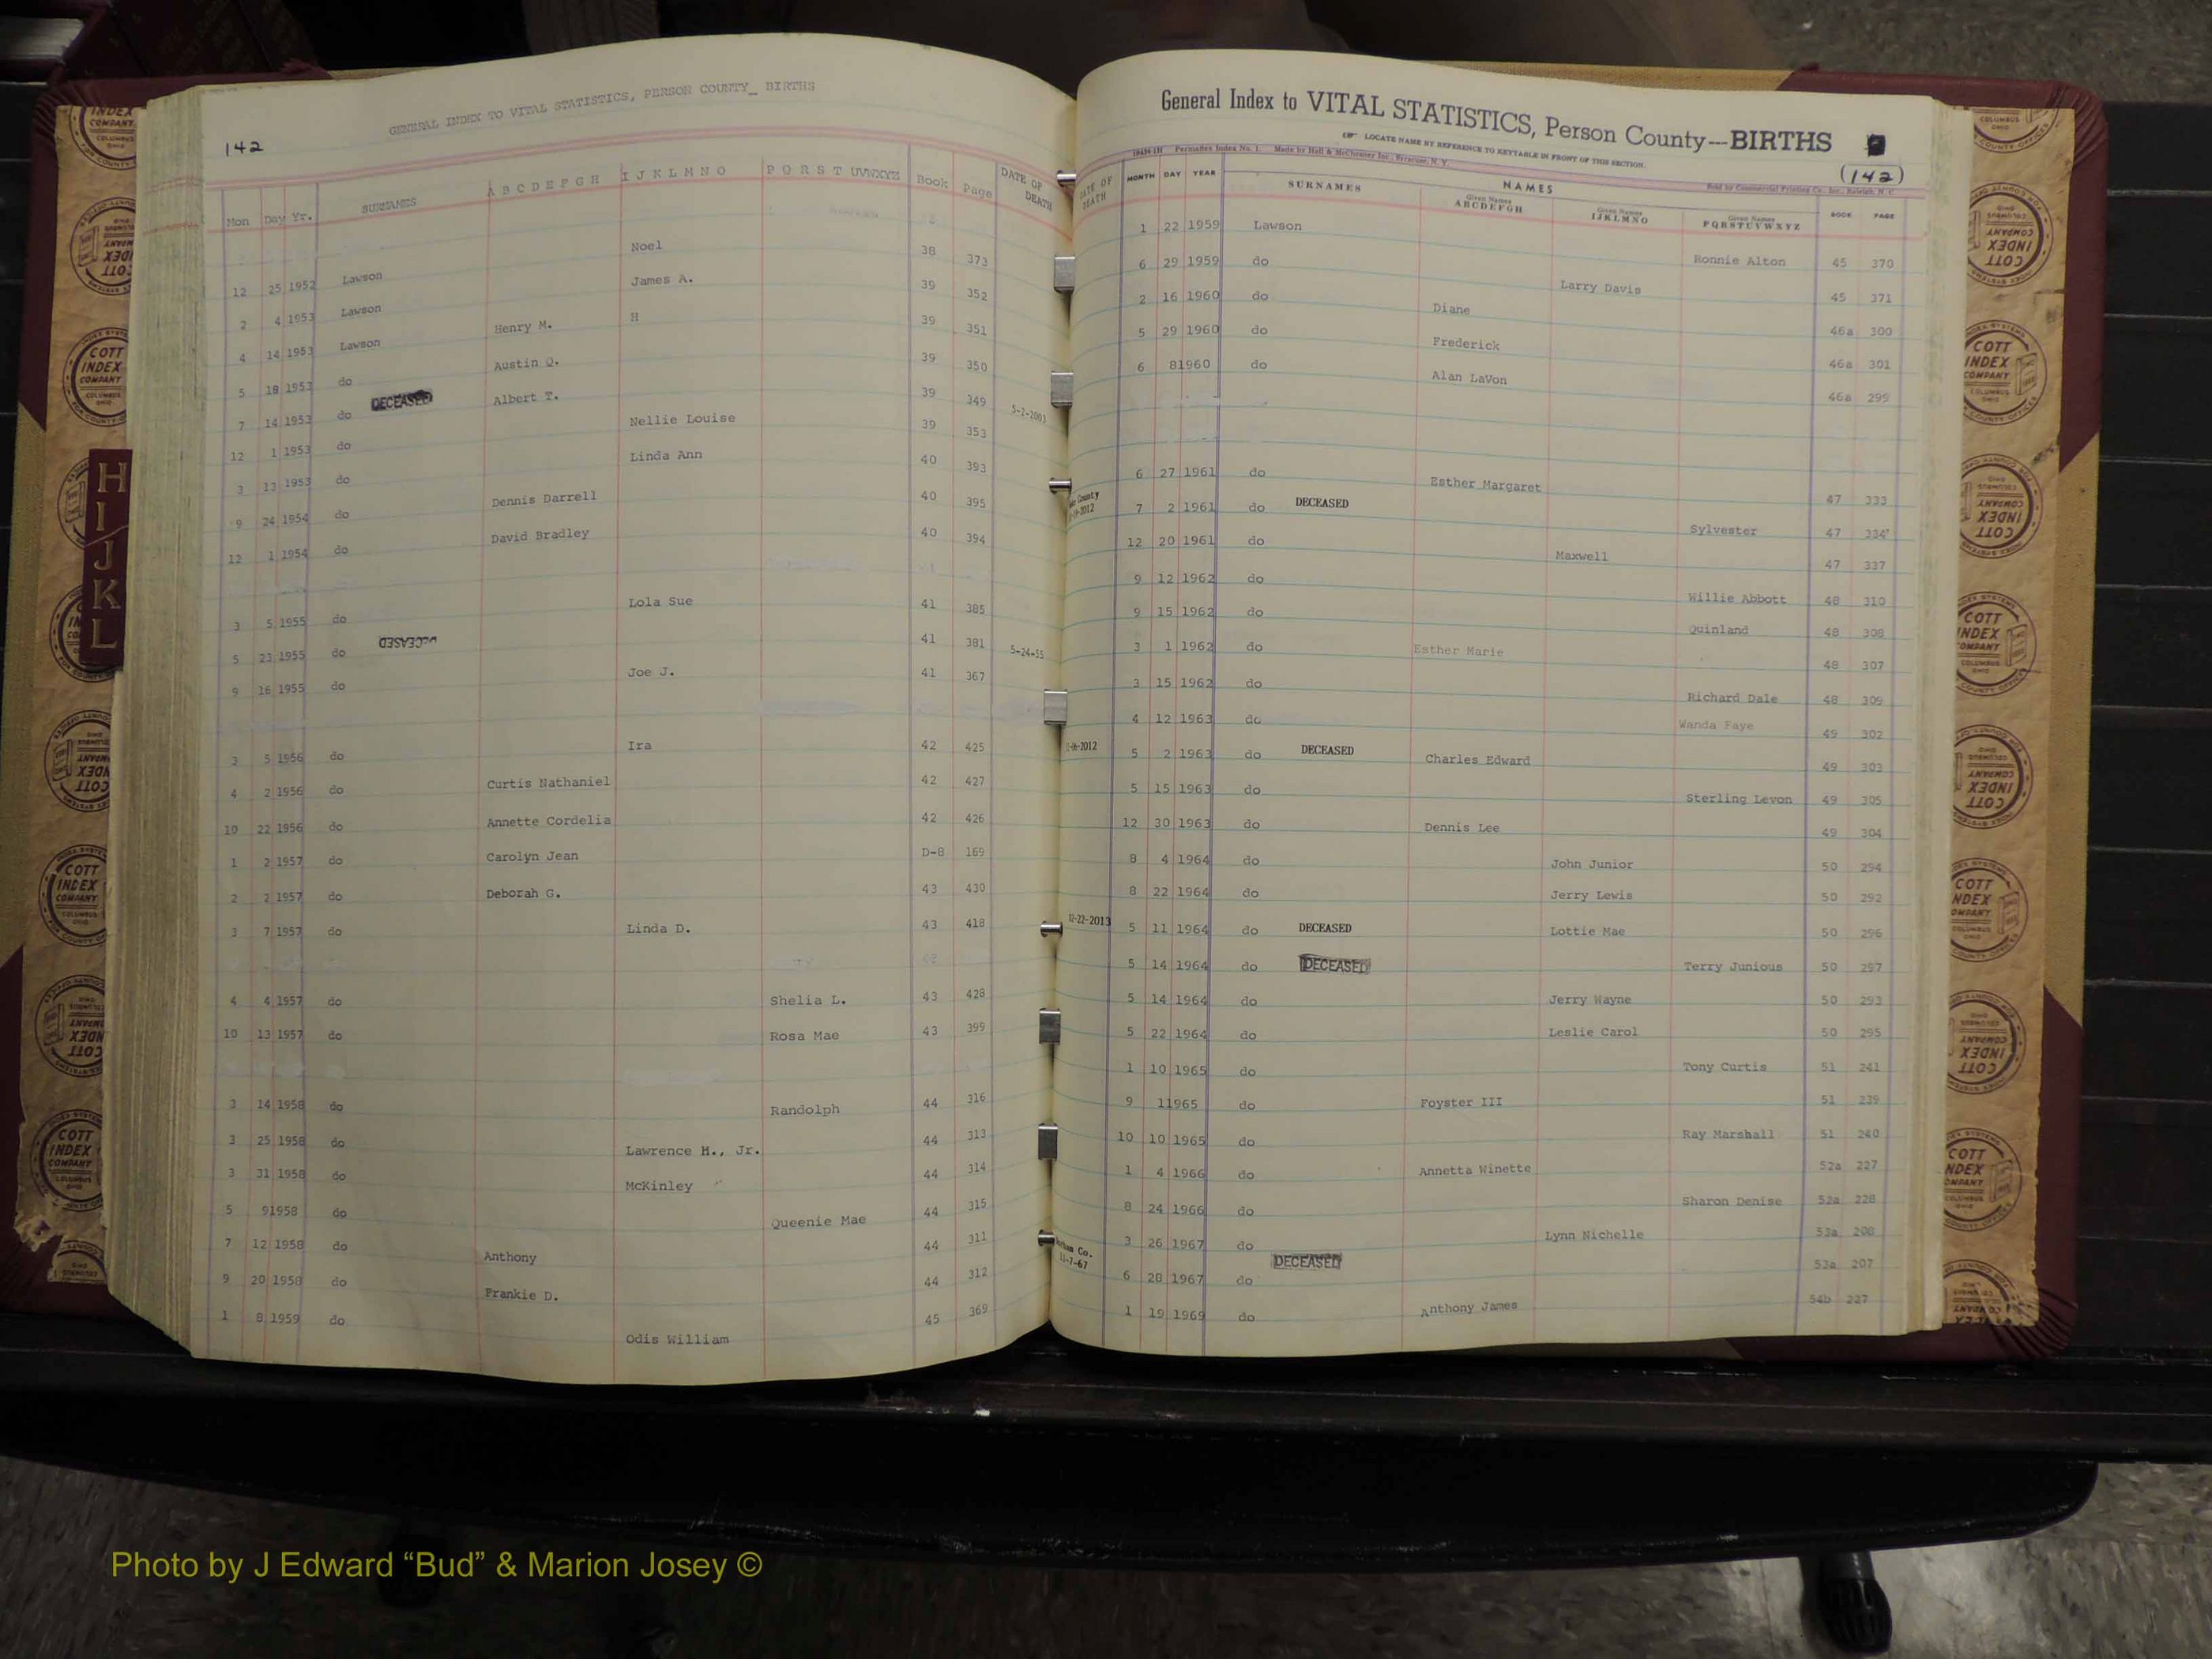 GENERAL INDEX TO VITAL STATISTICS, PERSON COUNTY_ BIRTHS
142
Mon Day Yr. SURNAMES A B C D E F G H I J K L M N O P Q R S T UVWXYZ Book Page DATE OF DEATH
12 25 1952 Lawson Noel 38 373
2 4 1953 Lawson James A. 39 352
4 14 1953 Lawson Henry M. H 39 351
5 18 1953 do Austin Q. 39 350
7 14 1953 do DECEASED Albert T. 39 349 5-2-2003
12 1 1953 do Nellie Louise 39 353
3 13 1953 do Linda Ann 40 393
9 24 1954 do Dennis Darrell 40 395
12 1 1954 do David Bradley 40 394
3 5 1955 do Lola Sue 41 385
5 23 1955 do DECEASED 41 381 5-24-55
9 16 1955 do Joe J. 41 367
3 5 1956 do Ira 42 425
4 2 1956 do Curtis Nathaniel 42 427
10 22 1956 do Annette Cordelia 42 426
1 2 1957 do Carolyn Jean D-8 169
2 2 1957 do Deborah G. 43 430
3 7 1957 do Linda D. 43 418
4 4 1957 do Shelia L. 43 428
10 13 1957 do Rosa Mae 43 399
3 14 1958 do Randolph 44 316
3 25 1958 do Lawrence H., Jr. 44 313
3 31 1958 do McKinley 44 314
5 91958 do Queenie Mae 44 315
7 12 1958 do Anthony 44 311
9 20 1958 do Frankie D. 44 312
1 8 1959 do Odis William 45 369
General Index to VITAL STATISTICS, Person County---BIRTHS
LOCATE NAME BY REFERENCE TO KEYTABLE IN FRONT OF THIS SECTION.
(142)
Permaflex Index No. 1. Made by Hall & McChesney Inc., Syracuse, N. Y. Sold by Commercial Printing Co., Inc., Raleigh, N. C.
DATE OF DEATH MONTH DAY YEAR SURNAMES NAMES Given Names ABCDEFGH Given Names IJKLMNO Given Names PQRSTUVWXYZ BOOK PAGE
1 22 1959 Lawson Ronnie Alton 45 370
6 29 1959 do Larry Davis 45 371
2 16 1960 do Diane 46a 300
5 29 1960 do Frederick 46a 301
6 81960 do Alan LaVon 46a 299
6 27 1961 do Esther Margaret 47 333
County 2012 7 2 1961 do DECEASED Sylvester 47 334
12 20 1961 do Maxwell 47 337
9 12 1962 do Willie Abbott 48 310
9 15 1962 do Quinland 48 308
3 1 1962 do Esther Marie 48 307
3 15 1962 do Richard Dale 48 309
4 12 1963 do Wanda Faye 49 302
-06-2012 5 2 1963 do DECEASED Charles Edward 49 303
5 15 1963 do Sterling Levon 49 305
12 30 1963 do Dennis Lee 49 304
8 4 1964 do John Junior 50 294
8 22 1964 do Jerry Lewis 50 292
12-22-2013 5 11 1964 do DECEASED Lottie Mae 50 296
5 14 1964 do DECEASED Terry Junious 50 297
5 14 1964 do Jerry Wayne 50 293
5 22 1964 do Leslie Carol 50 295
1 10 1965 do Tony Curtis 51 241
9 11965 do Foyster III 51 239
10 10 1965 do Ray Marshall 51 240
1 4 1966 do Annetta Winette 52a 227
8 24 1966 do Sharon Denise 52a 228
3 26 1967 do Lynn Nichelle 53a 208
Co. -7-67 6 28 1967 do DECEASED 53a 207
1 19 1969 do Anthony James 54b 227
H
I
J
K
L
COTT
INDEX
COMPANY
COLUMBUS
OHIO
Photo by J Edward “Bud” & Marion Josey ©